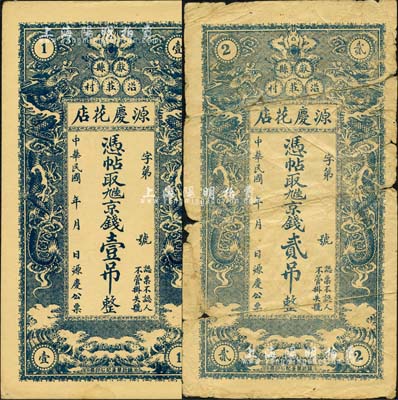 1
壹
獻縣
冶莊村
源慶花店
字第 號
憑帖取旭京錢壹吊整
中華民國 年 月 日 源慶公票
認票不認人
不管掛失號
壹
1
2
貳
獻縣
冶莊村
源慶花店
字第 號
憑帖取旭京錢貳吊整
中華民國 年 月 日 源慶公票
認票不認人
不管掛失號
貳
2